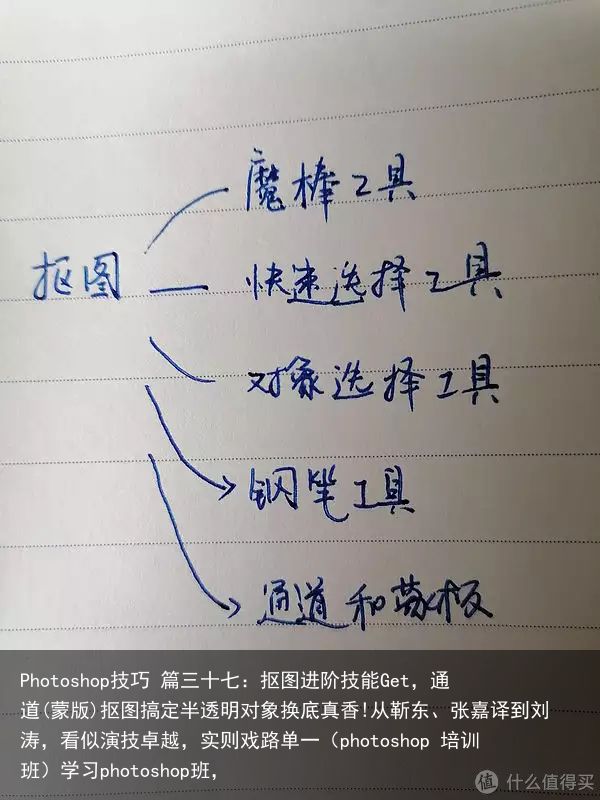 魔棒工具
抠图
快速选择工具
对象选择工具
钢笔工具
通道和蒙板
Photoshop技巧 篇三十七：抠图进阶技能Get，通
道(蒙版)抠图搞定半透明对象换底真香!从靳东、张嘉译到刘
涛，看似演技卓越，实则戏路单一（photoshop 培训
班）学习photoshop班，
值 什么值得买